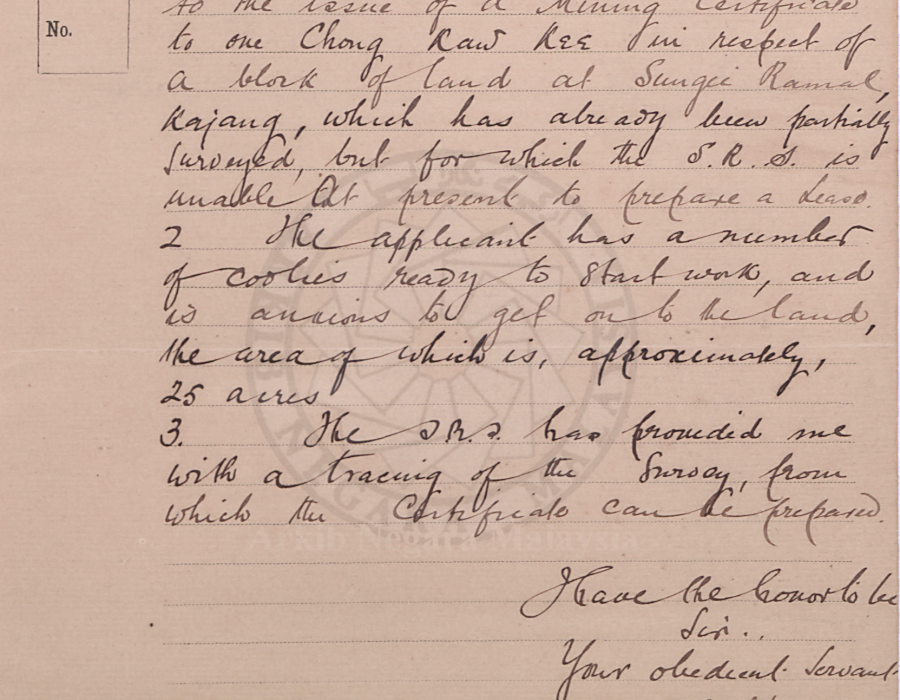 No.
to the issue of a Mining Certificate
to one Chong Kaw Kee in respect of
a block of land at Sungei Ramal,
Kajang, which has already been partially
Surveyed, but for which the S.R.S. is
unable at present to prepare a Lease.
2 The applicant has a number
of coolies ready to start work, and
is anxious to get on to the land,
the area of which is, approximately,
25 acres
3. The S.R.S. has provided me
with a tracing of the Survey, from
which the Certificate can be prepared.
Arkib Negara Malaysia
I Have the honor to be
Sir..
Your obedient Servant